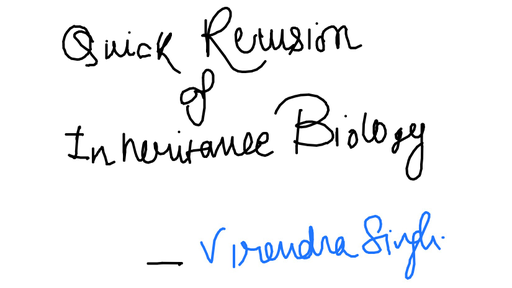 Quick Revision
of
Inheritance Biology
— Virendra Singh.